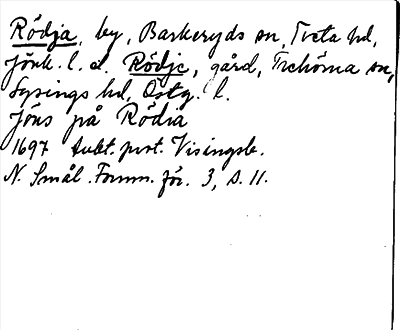 Rödja, by, Barkeryds sn, Tveta hd,
Jönk. l. el. Rödje, gård, Trehörna sn,
Lysings hd, Östg. l.
Jöns på Rödia
1697 dubt. prot. Visingsb.
N. Smål. Fornm. för. 3, s. 11.